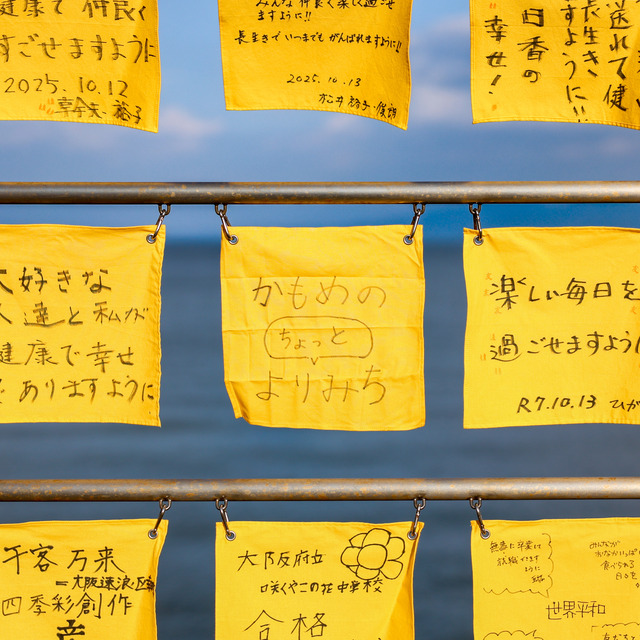 健康で 仲良く
すごせますように
2025.10.12
裕子
みんな 仲良く楽しく過ごせ
ますように!!
長生きで いつまでも がんばれますように!!
2025.10.13
松井 裕子・俊朗
送れて健
長生き
すように!!
日香の
幸せ!
大好きな
友達と私が
健康で幸せ
で ありますように
かもめの
ちょっと
よりみち
楽しい毎日を
過ごせますように
R7.10.13 ひが
千客万来
=大阪速浪区
四季彩創作
大阪府立
咲くやこの花中学校
合格
無事に卒業して
就職できます
ように
みんなが
食べられる
日を
世界平和